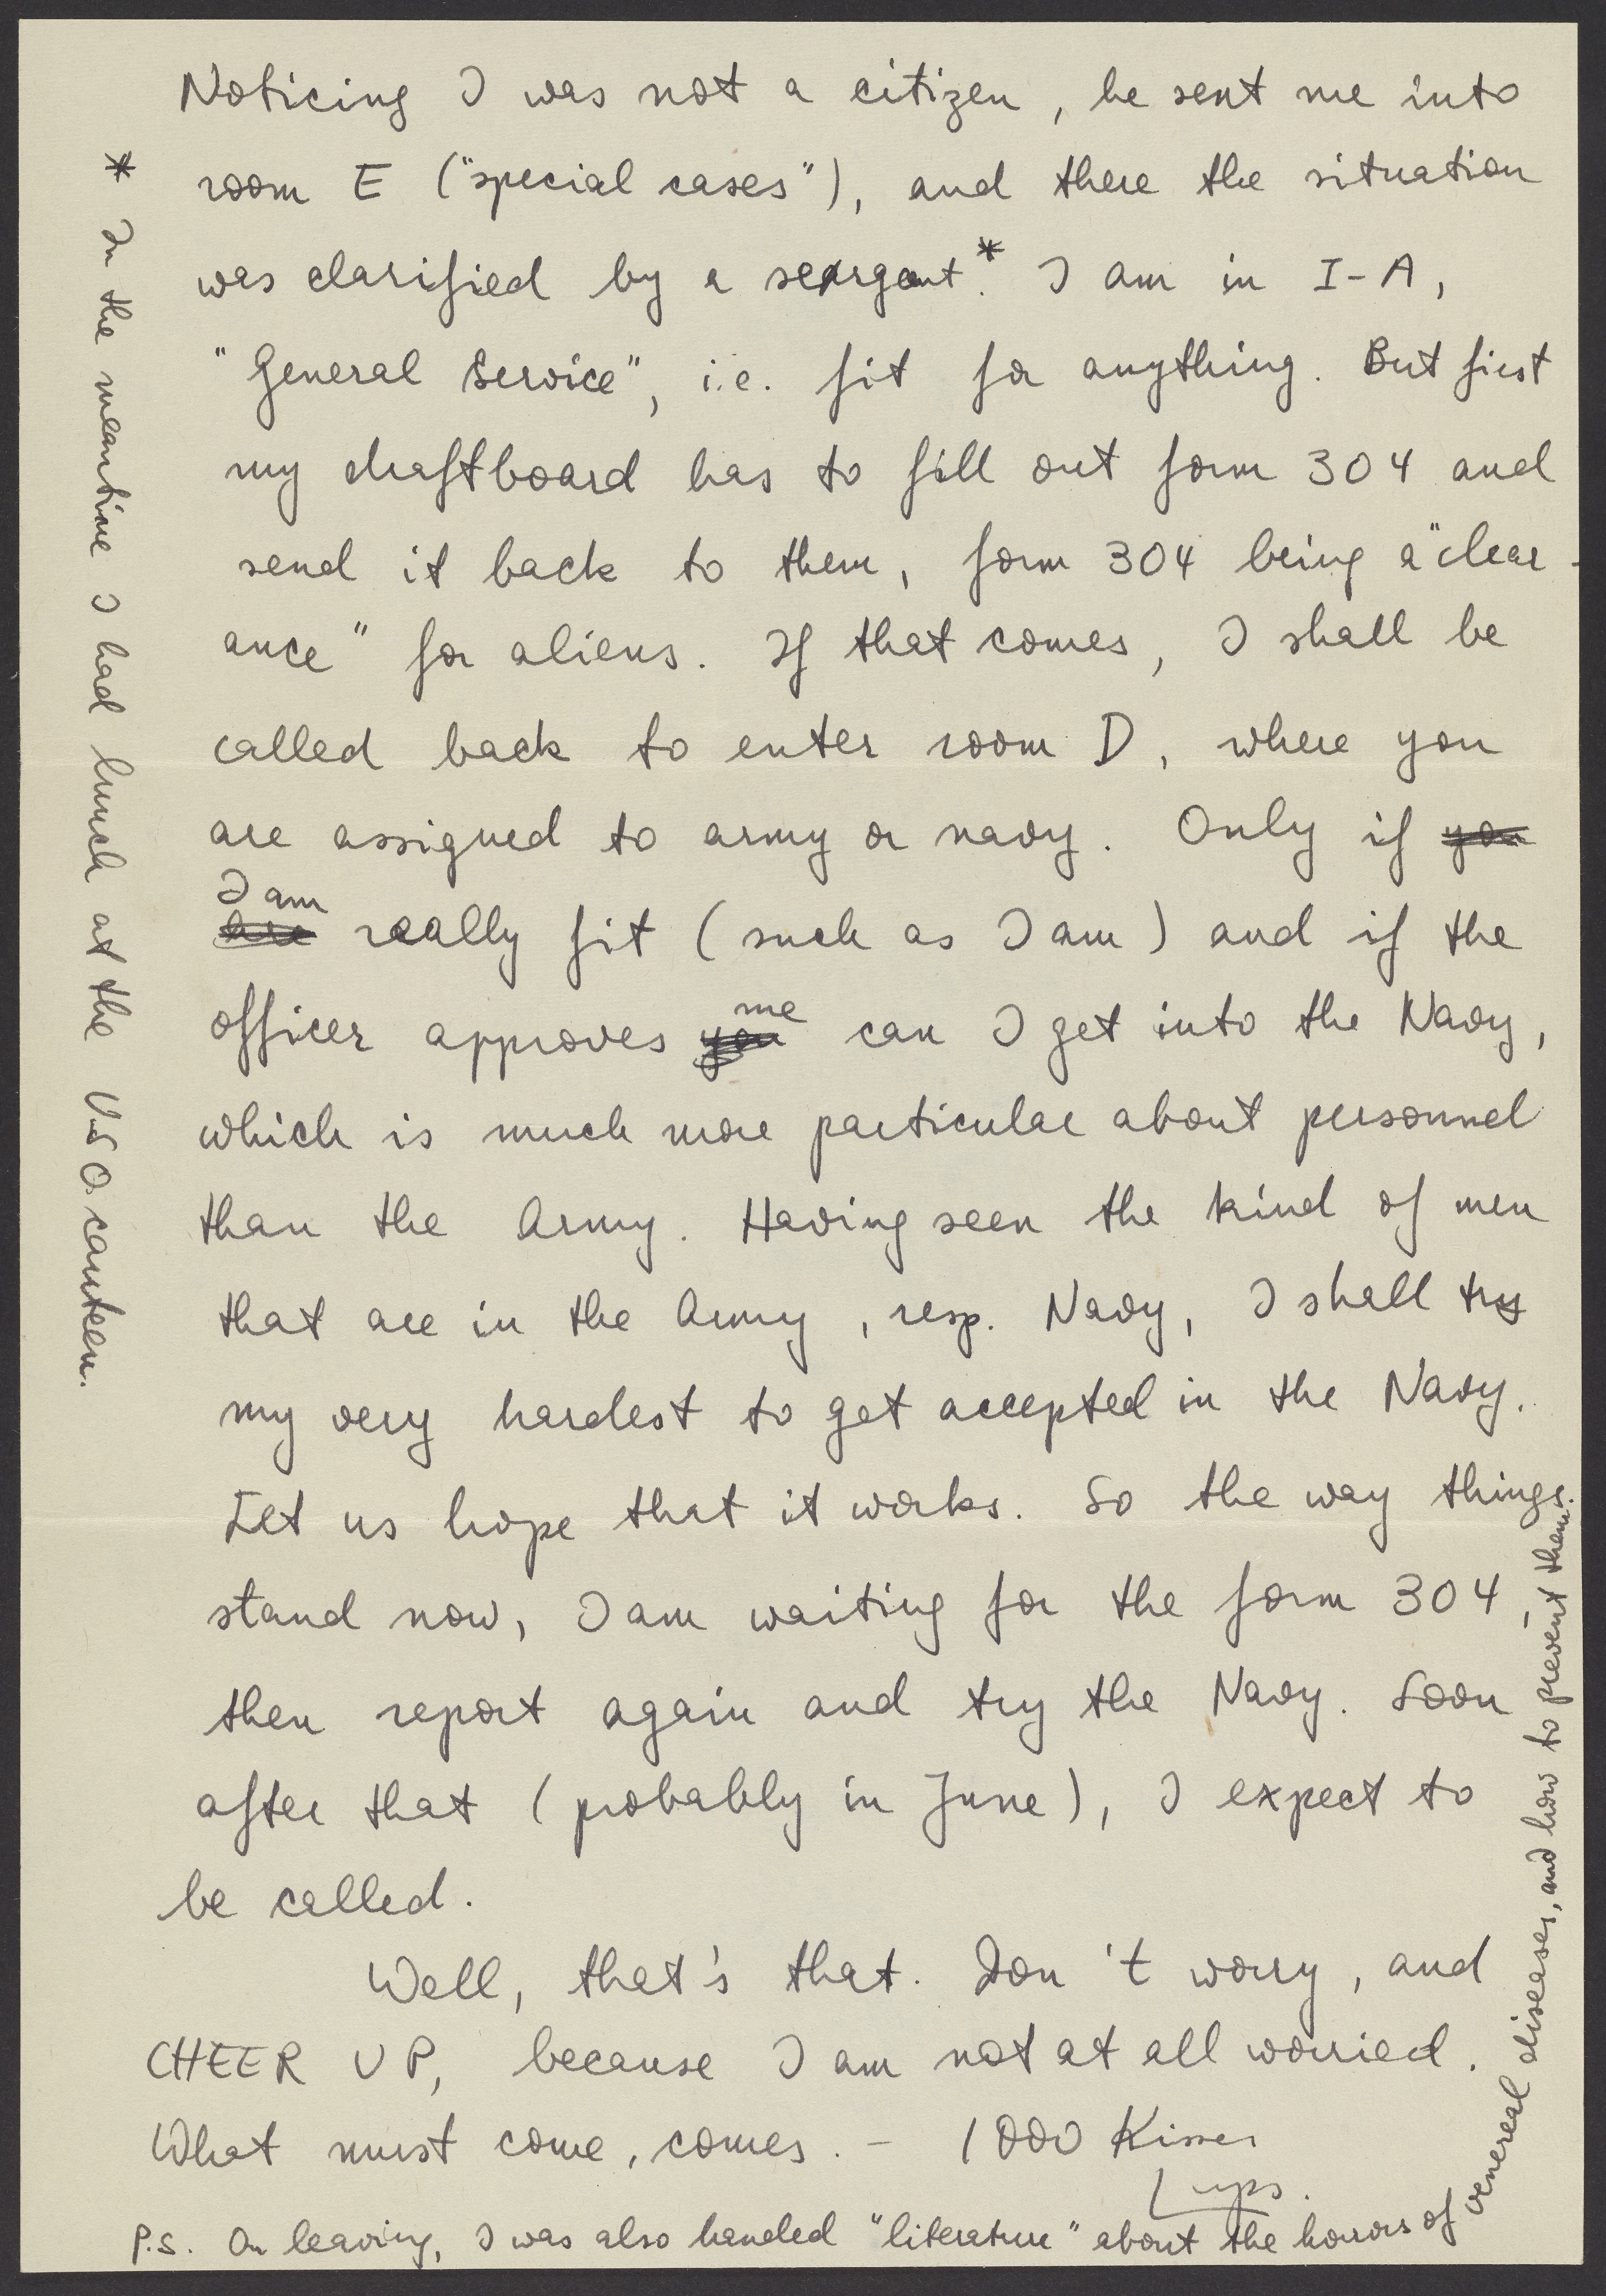 Noticing I was not a citizen, he sent me into
room E ("special cases"), and there the situation
was clarified by a seargant.* I am in I-A,
"General Service", i.e. fit for anything. But first
my draftboard has to fill out form 304 and
send it back to them, form 304 being a "clear-
ance" for aliens. If that comes, I shall be
called back to enter room D, where you
are assigned to army or navy. Only if you
I am
are really fit (such as I am) and if the
me
officer approves you can I get into the Navy,
which is much more particular about personnel
than the Army. Having seen the kind of men
that are in the Army, resp. Navy, I shall try
my very hardest to get accepted in the Navy.
Let us hope that it works. So the way things
stand now, I am waiting for the form 304,
then report again and try the Navy. Soon
after that (probably in June), I expect to
be called.
Well, that's that. Don't worry, and
CHEER UP, because I am not at all worried.
What must come, comes. - 1000 Kisses
P.S. On leaving, I was also handed "literature" about the horrors of venereal diseases, and how to prevent them.
* In the meantime I had lunch at the U.S.O. canteen.